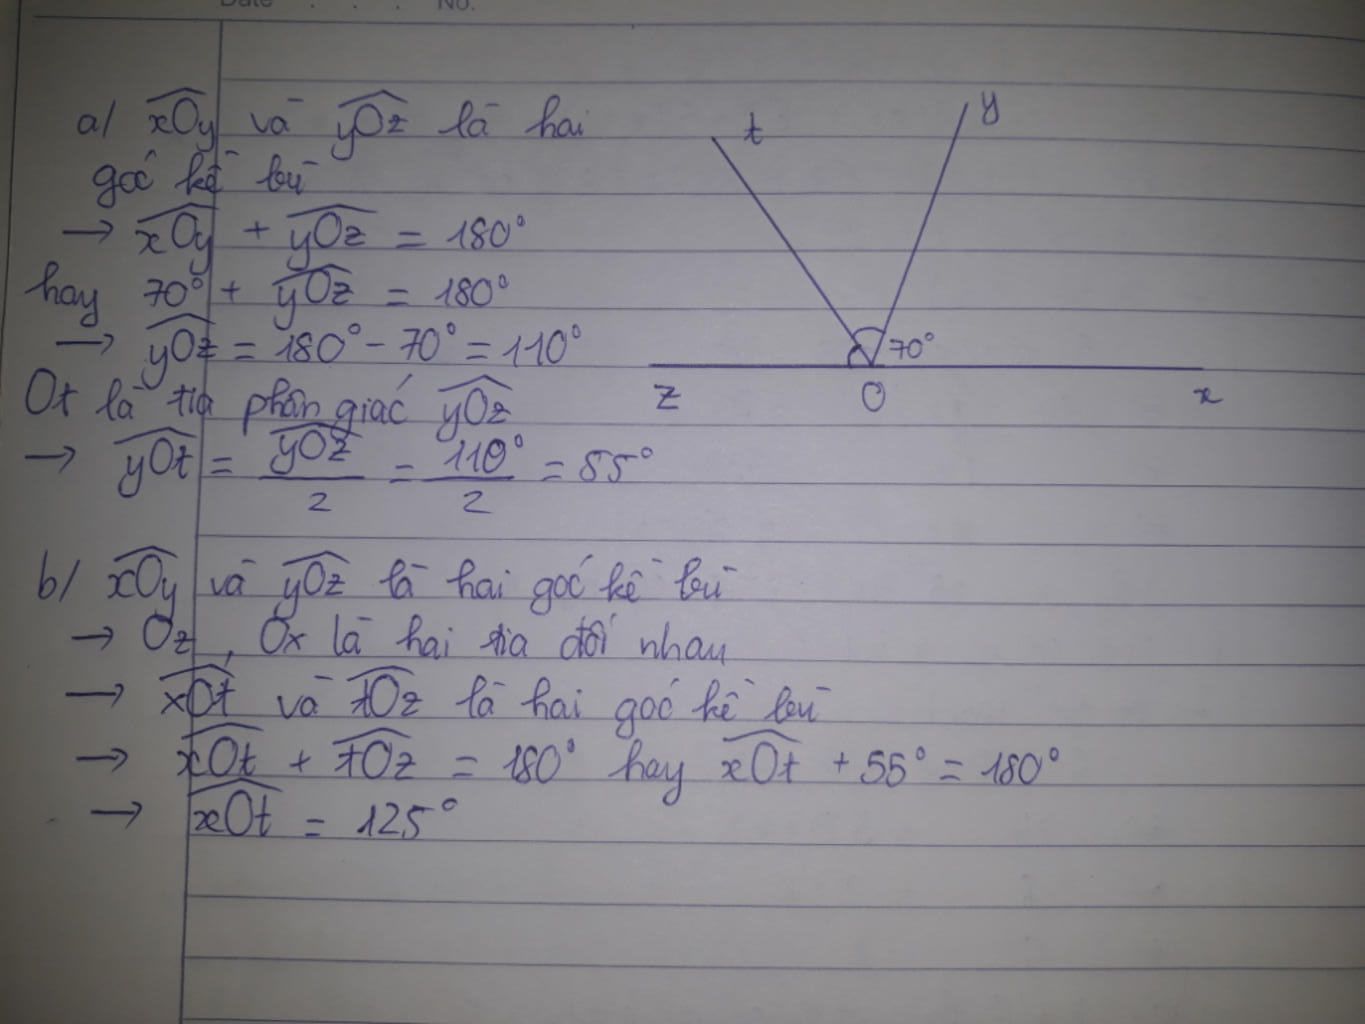 Date . . . No.
a/ xOy và yOz là hai
góc kề bù
→ xOy + yOz = 180°
hay 70° + yOz = 180°
→ yOz = 180° - 70° = 110°
Ot là tia phân giác yOz
→ yOt = yOz/2 = 110°/2 = 55°
t
y
70°
z O x
b/ xOy và yOz là hai góc kề bù
→ Oz, Ox là hai tia đối nhau
→ xOt và tOz là hai góc kề bù
→ xOt + tOz = 180° hay xOt + 55° = 180°
→ xOt = 125°